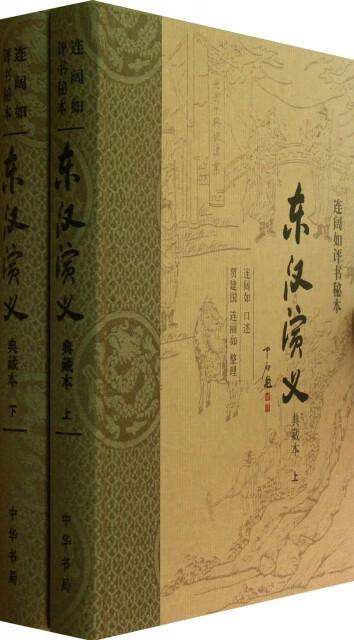 连阔如
评书秘本
东汉演义
典藏本 下
中华书局
连阔如
评书秘本
东汉演义
典藏本 上
中华书局
连阔如评书秘本
东汉演义
典藏本 上
连阔如 口述
贾建国 连丽如 整理